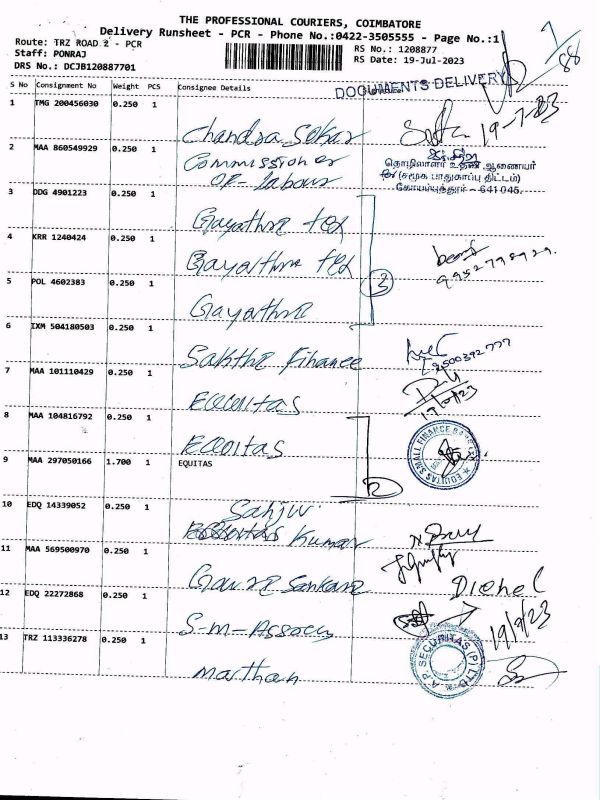 THE PROFESSIONAL COURIERS, COIMBATORE
Delivery Runsheet - PCR - Phone No.:0422-3505555 - Page No.:1
Route: TRZ ROAD 2 - PCR
Staff: PONRAJ
DRS No.: DCJB120887701
RS No.: 1208877
RS Date: 19-Jul-2023
88
DOCUMENTS DELIVERY
S No Consignment No Weight PCS Consignee Details
1 TMG 200456030 0.250 1 Chandra Sekar
19-7-23
2 MAA 860549929 0.250 1 Commissioner of labour
தொழிலாளர் உதவி ஆணையர்
(சமூக பாதுகாப்பு திட்டம்)
கோயம்புத்தூர் - 641 045.
3 DDG 4901223 0.250 1 Gayathri tex
4 KRR 1240424 0.250 1 Gayathri tex
3
5 POL 4602383 0.250 1 Gayathri
6 IXM 504180503 0.250 1 Sakthi Finance
7 MAA 101110429 0.250 1 Equitas
8 MAA 104816792 0.250 1 Equitas
EQUITAS SMALL FINANCE BANK
9 MAA 297050166 1.700 1 EQUITAS
2
10 EDQ 14339052 0.250 1 Kumar
11 MAA 569500970 0.250 1 Gowri Sankar
12 EDQ 22272868 0.250 1 S-M-Assocs
19/7/23
13 TRZ 113336278 0.250 1 Marthan
A.P. SECURITAS (P) LTD